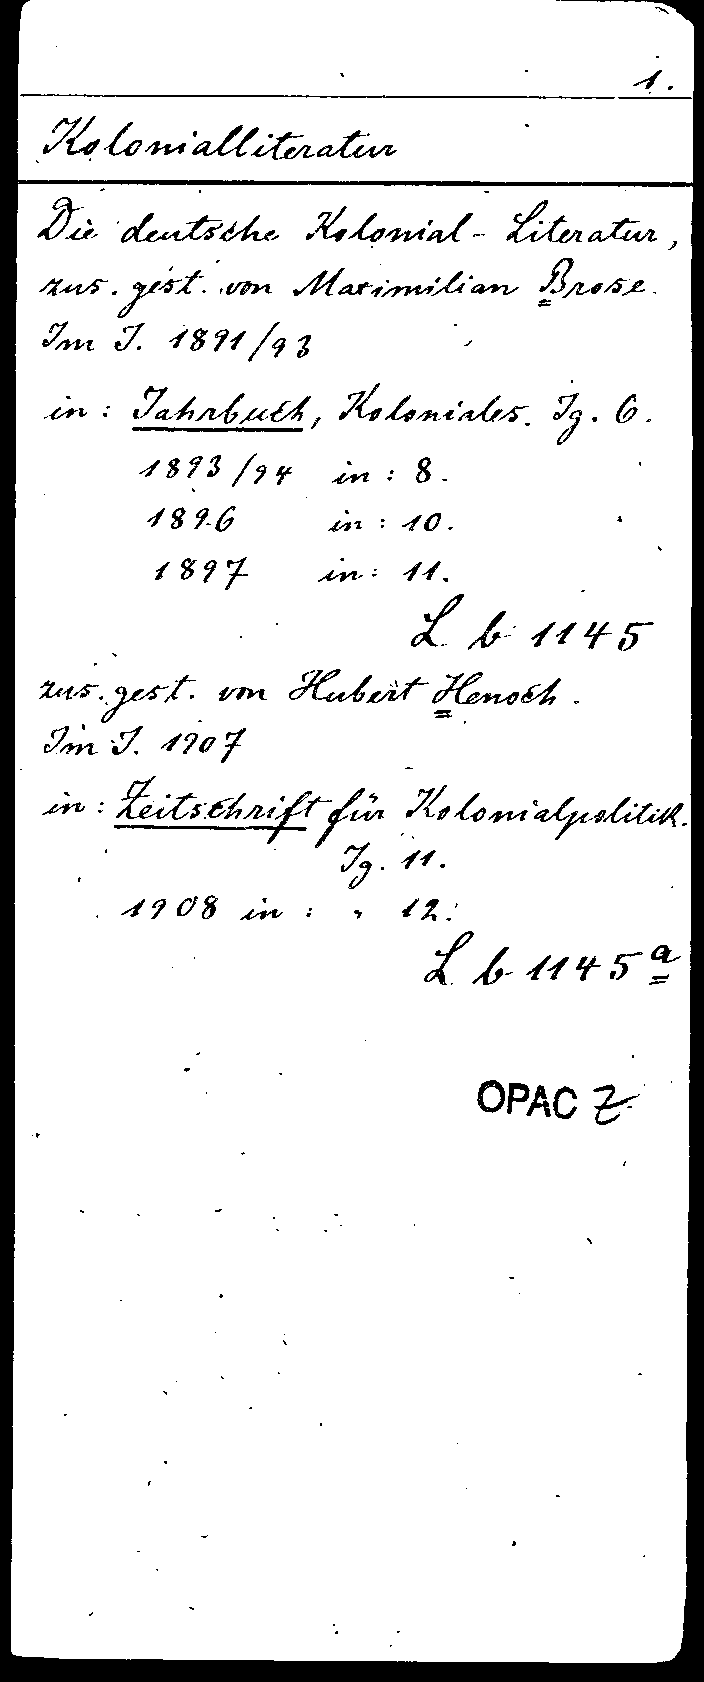 1.
Kolonialliteratur
Die deutsche Kolonial-Literatur,
zus. gest. von Maximilian Brose.
Im J. 1891/93
in: Jahrbuch, Koloniales. Jg. 6.
1893/94 in: 8.
1896 in: 10.
1897 in: 11.
L b 1145
zus. gest. von Hubert Henoch.
Im J. 1907
in: Zeitschrift für Kolonialpolitik.
Jg. 11.
1908 in: " 12.
L b 1145 a
OPAC Z